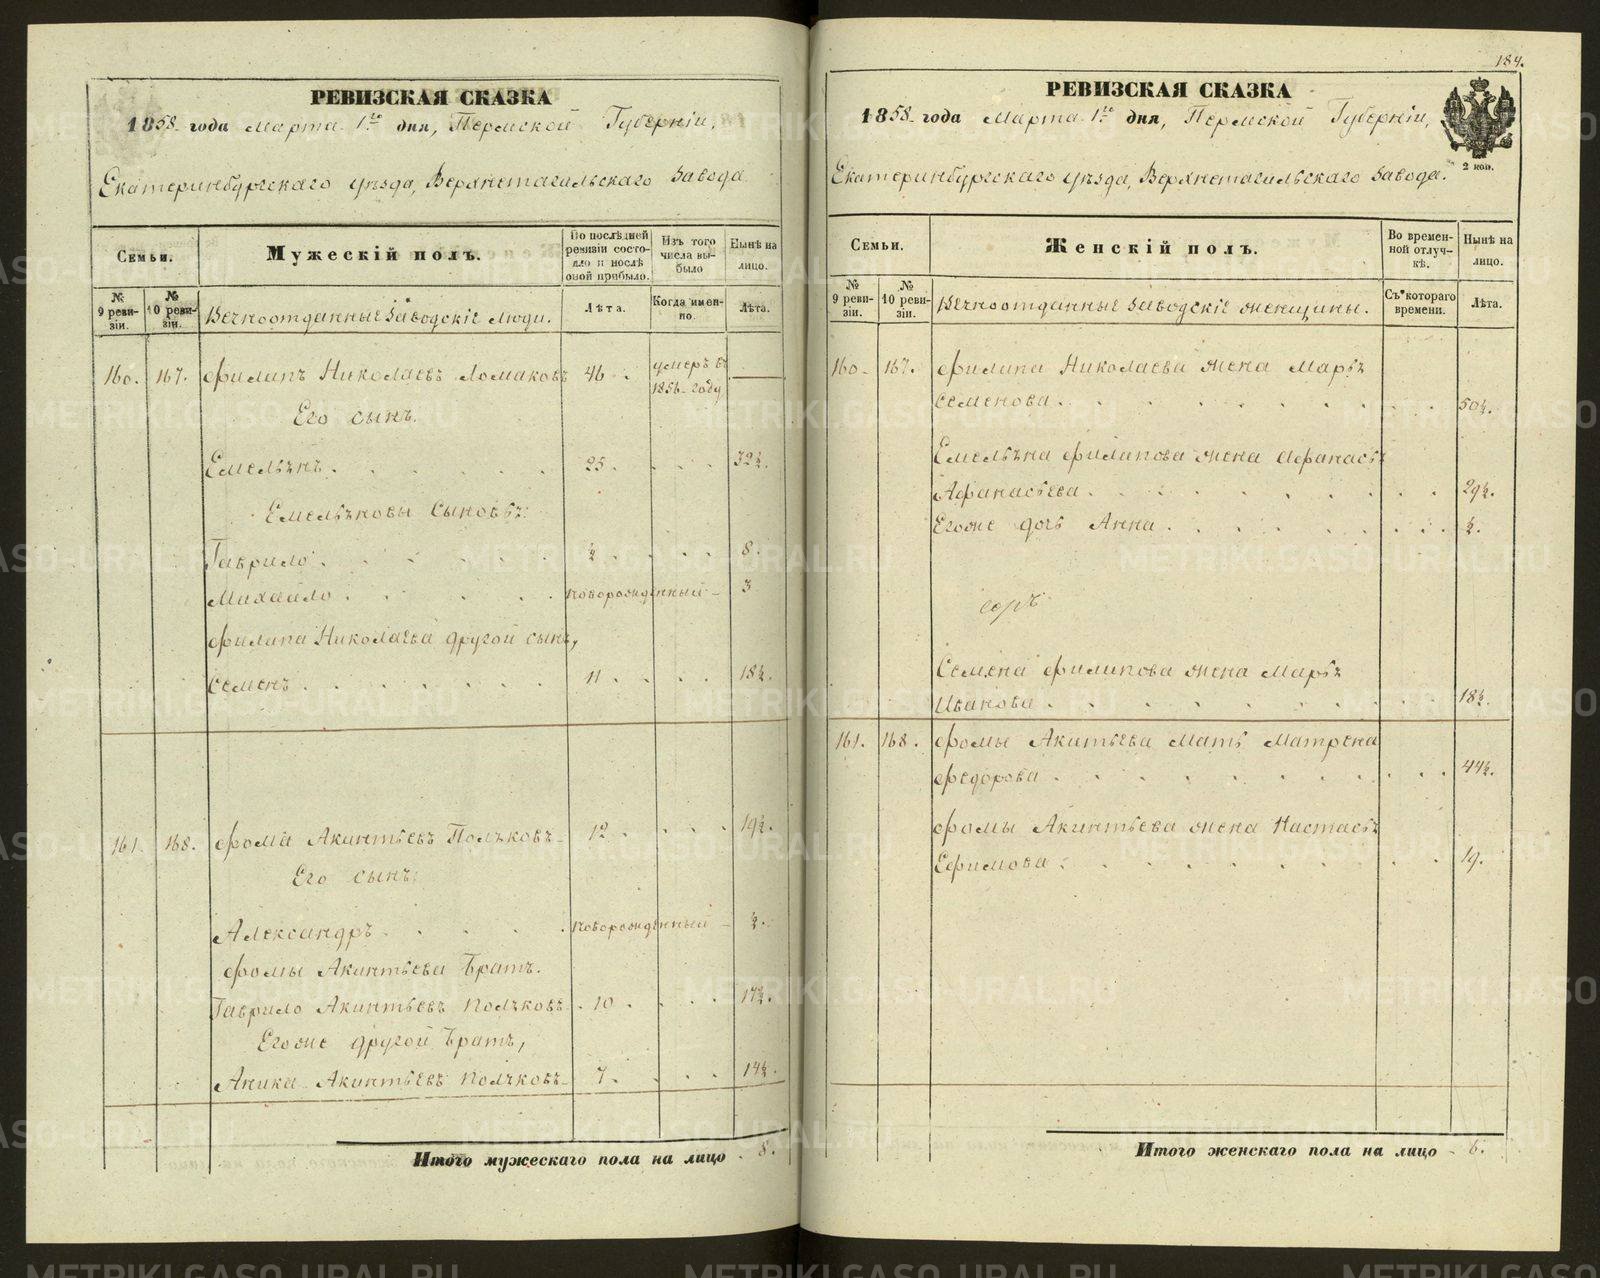 РЕВИЗСКАЯ СКАЗКА
1858 года Марта 1го дня, Пермской Губерніи,
Екатеринбургскаго уѣзда, Верхнетагильскаго завода
Семьи.
Мужескій полъ.
По послѣдней ревизіи состояло и послѣ оной прибыло.
Изъ того числа выбыло
Нынѣ на лицо.
№ 9 ревизіи.
№ 10 ревизіи.
Вечноотданные заводскіе люди.
Лѣта.
Когда именно.
Лѣта.
160. 167. Филипъ Николаевъ Ломаковъ 46. умеръ въ 1856 году
Его сынъ.
Емельянъ. 25. 32½.
Емельяновы сыновья:
Гаврило. ½. 8.
Михайло. новорожденный 3
Филипа Николаева другой сынъ,
Семенъ. 11. 18½.
161. 168. Фома Акинтьевъ Поляковъ 12. 19½.
Его сынъ:
Александръ. новорожденный ½.
Фомы Акинтьева братъ.
Гаврило Акинтьевъ Поляковъ 10. 17½.
Егоже другой братъ,
Аника Акинтьевъ Поляковъ 7. 14½.
Итого мужескаго пола на лицо 8.
184.
РЕВИЗСКАЯ СКАЗКА
1858 года Марта 1го дня, Пермской Губерніи,
Екатеринбургскаго уѣзда, Верхнетагильскаго завода.
2 коп.
Семьи.
Женскій полъ.
Во временной отлучкѣ.
Нынѣ на лицо.
№ 9 ревизіи.
№ 10 ревизіи.
Вечноотданные заводскіе женщины.
Съ котораго времени.
Лѣта.
160. 167. Филипа Николаева жена Марья
Семенова. 50½.
Емельяна Филипова жена Афанасья
Афанасьева. 29½.
Егоже дочь Анна. ½.
Семена Филипова жена Марья
Иванова. 18½.
161. 168. Фомы Акитьева мать Матрена
Федорова. 44½.
Фомы Акинтьева жена Настасья
Ефимова. 19.
Итого женскаго пола на лицо 6.
METRIKI.GASO-URAL.RU